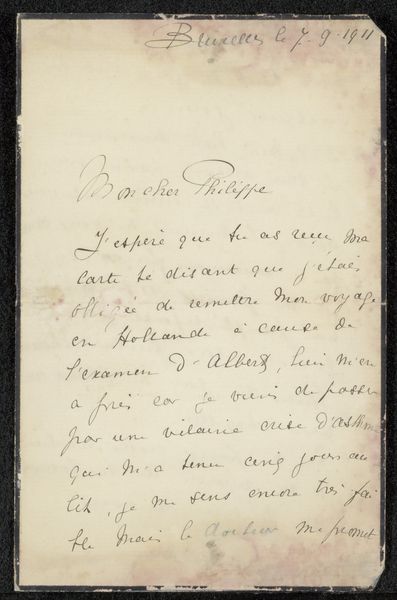 Bruxelles le 7-9-1911
Mon cher Philippe
J'espère que tu as reçu ma
carte te disant que j'étais
obligée de remettre mon voyage
en Hollande à cause de
l'examen d'Albert,
a pris car je viens de passer
par une vilaine crise d'asthme
qui m'a tenu cinq jours au
lit, je me sens encore très fai
ble mais le docteur me promet